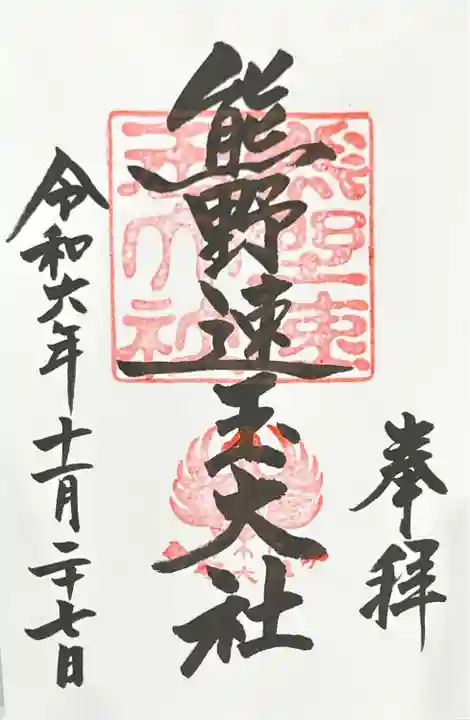 奉拝
熊野速玉大社
令和六年十一月二十七日
熊野速
玉大社